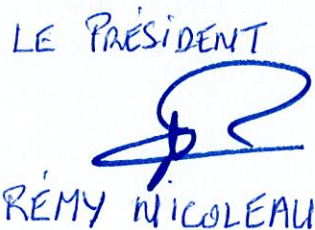 LE PRÉSIDENT
RÉMY NICOLEAU